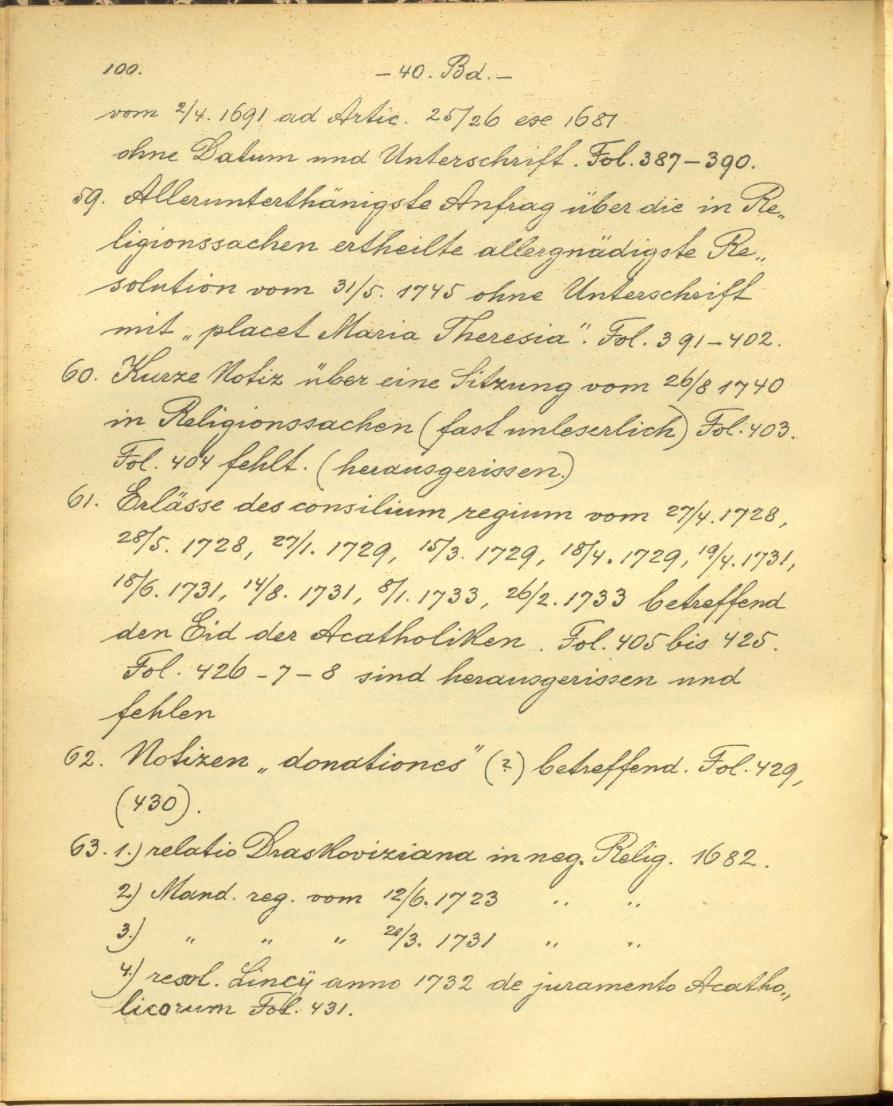 100.
– 40. Bd. –
vom 2/4. 1691 ad Artic. 25/26 exe 1681
ohne Datum und Unterschrift. Fol. 387 – 390.
59. Allerunterthänigste Anfrag über die in Re„
ligionssachen ertheilte allergnädigste Re„
solution vom 31/5. 1745 ohne Unterschrift
mit „placet Maria Theresia“. Fol. 391 – 402.
60. Kurze Notiz über eine Sitzung vom 26/8 1740
in Religionssachen (fast unleserlich) Fol. 403.
Fol. 404 fehlt. (herausgerissen)
61. Erlässe des consilium regium vom 27/4. 1728,
28/5. 1728, 27/1. 1729, 15/3. 1729, 18/4. 1729, 19/4. 1731,
18/6. 1731, 14/8. 1731, 8/1. 1733, 26/2. 1733 betreffend
den Eid der Acatholiken. Fol. 405 bis 425.
Fol. 426 – 7 – 8 sind herausgerissen und
fehlen
62. Notizen „donationes“ (?) betreffend. Fol. 429,
(430).
63. 1.) relatio Draskoviziana in neg. Relig. 1682.
2) Mand. reg. vom 12/6. 1723 " "
3.) " " " /3. 1731 " "
4.) resol. Lincÿ anno 1732 de juramento Acatho„
licorum Fol. 431.